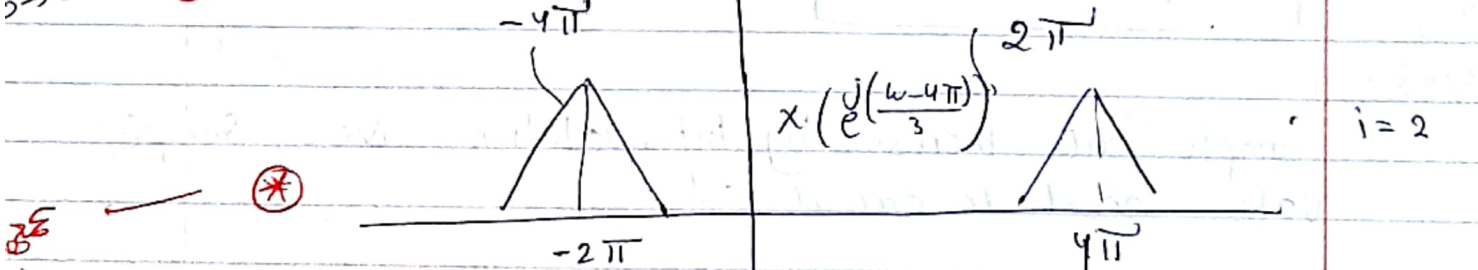 -4π 2π
X(e^{j(\frac{ω-4π}{3})}) i = 2
-2π 4π